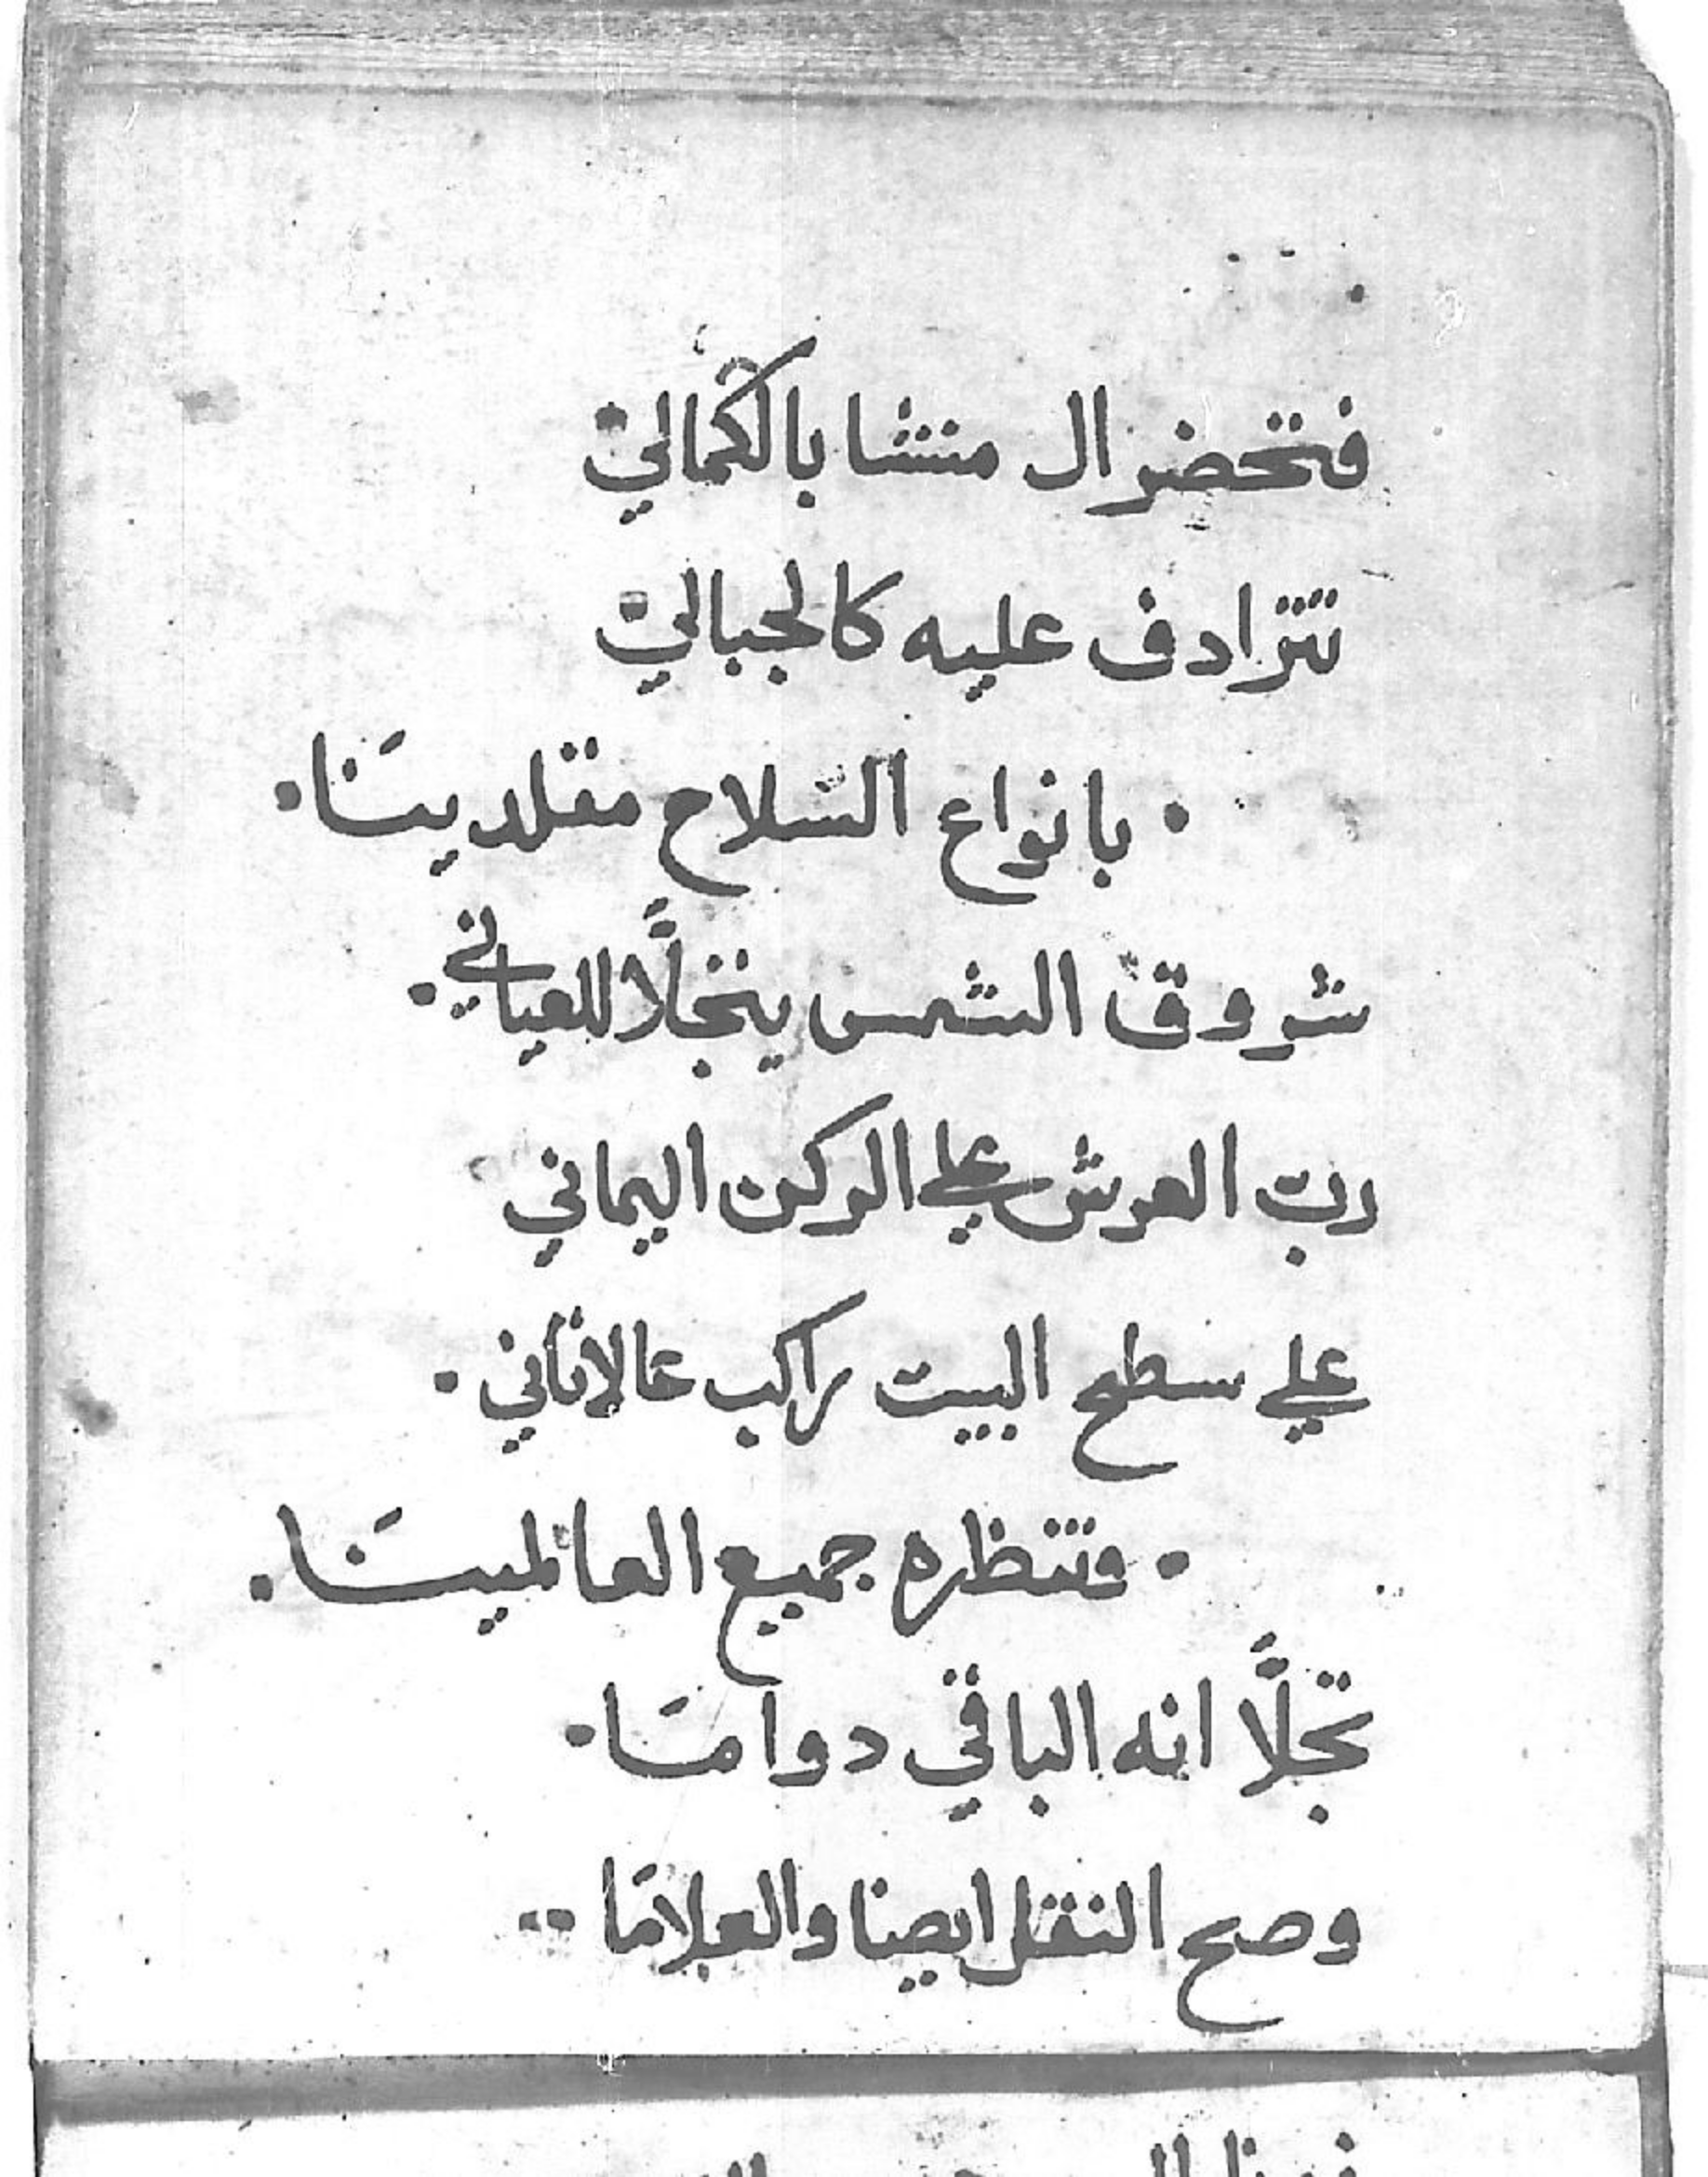 فتحضر ال منشا بالكمالي
تترادف عليه كالجبالي
· بانواع السلاح مقلدينَا ·
شروق الشمس يتجلَّا للعياني ·
رب العرش علي الركن اليماني
علي سطح البيت راكب عالاتاني ·
· وتنظره جميع العالمينَا ·
تجلَّا انه الباقي دوامَا ·
وصح النقل ايضا والعلامَا ··